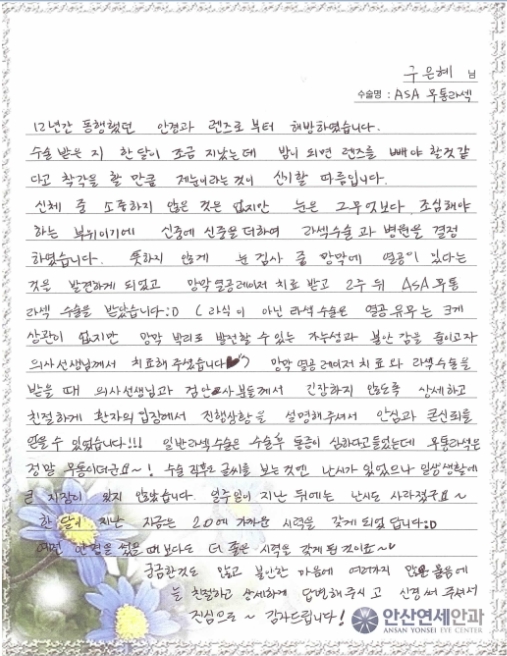 구은혜 님
수술명 : ASA 무통라섹
12년간 동행했던 안경과 렌즈로 부터 해방하였습니다.
수술 받은 지 한 달이 조금 지났는데 밤이 되면 렌즈를 빼야 할것 같
다고 착각을 할 만큼 제눈이라는 것이 신기할 따름입니다.
신체 중 소중하지 않은 것은 없지만 눈은 그무엇보다 조심해야
하는 부위이기에 신중에 신중을 더하여 라섹수술과 병원을 결정
하였습니다. 뜻하지 않게 눈 검사 중 망막에 열공이 있다는
것을 발견하게 되었고 망막 열공레이저 치료 받고 2주 뒤 ASA 무통
라섹 수술을 받았습니다:D (라식이 아닌 라섹수술은 열공 유무는 크게
상관이 없지만 망막 박리로 발전할 수 있는 가능성과 불안 감을 줄이고자
의사선생님께서 치료해 주셨습니다♥) 망막 열공 레이저 치료와 라섹수술을
받을 때 의사선생님과 검안사분들께서 긴장하지 않도록 상세하고
친절하게 환자의 입장에서 진행상황을 설명해주셔서 안심과 큰신뢰를
얻을 수 있었습니다!!! 일반라섹수술은 수술후 통증이 심하다고들었는데 무통라섹은
정말 무통이더군요~! 수술 직후은 글씨를 보는것엔 난시가 있었으나 일상생활에
큰 지장이 되지 않았습니다. 일주일이 지난 뒤에는 난시도 사라졌구요~
한 달이 지난 지금은 2.0에 가까운 시력을 갖게 되었 답니다:D
예전 안경을 썼을 때 보다도 더 좋은 시력을 갖게 된 것이죠~
궁금한것도 많고 불안한 마음에 여러가지 많은 물음에
늘 친절하고 상세하게 답변해주시고 신경써 주셔서
진심으로 ~ 감사드립니다!
안산연세안과
ANSAN YONSEI EYE CENTER